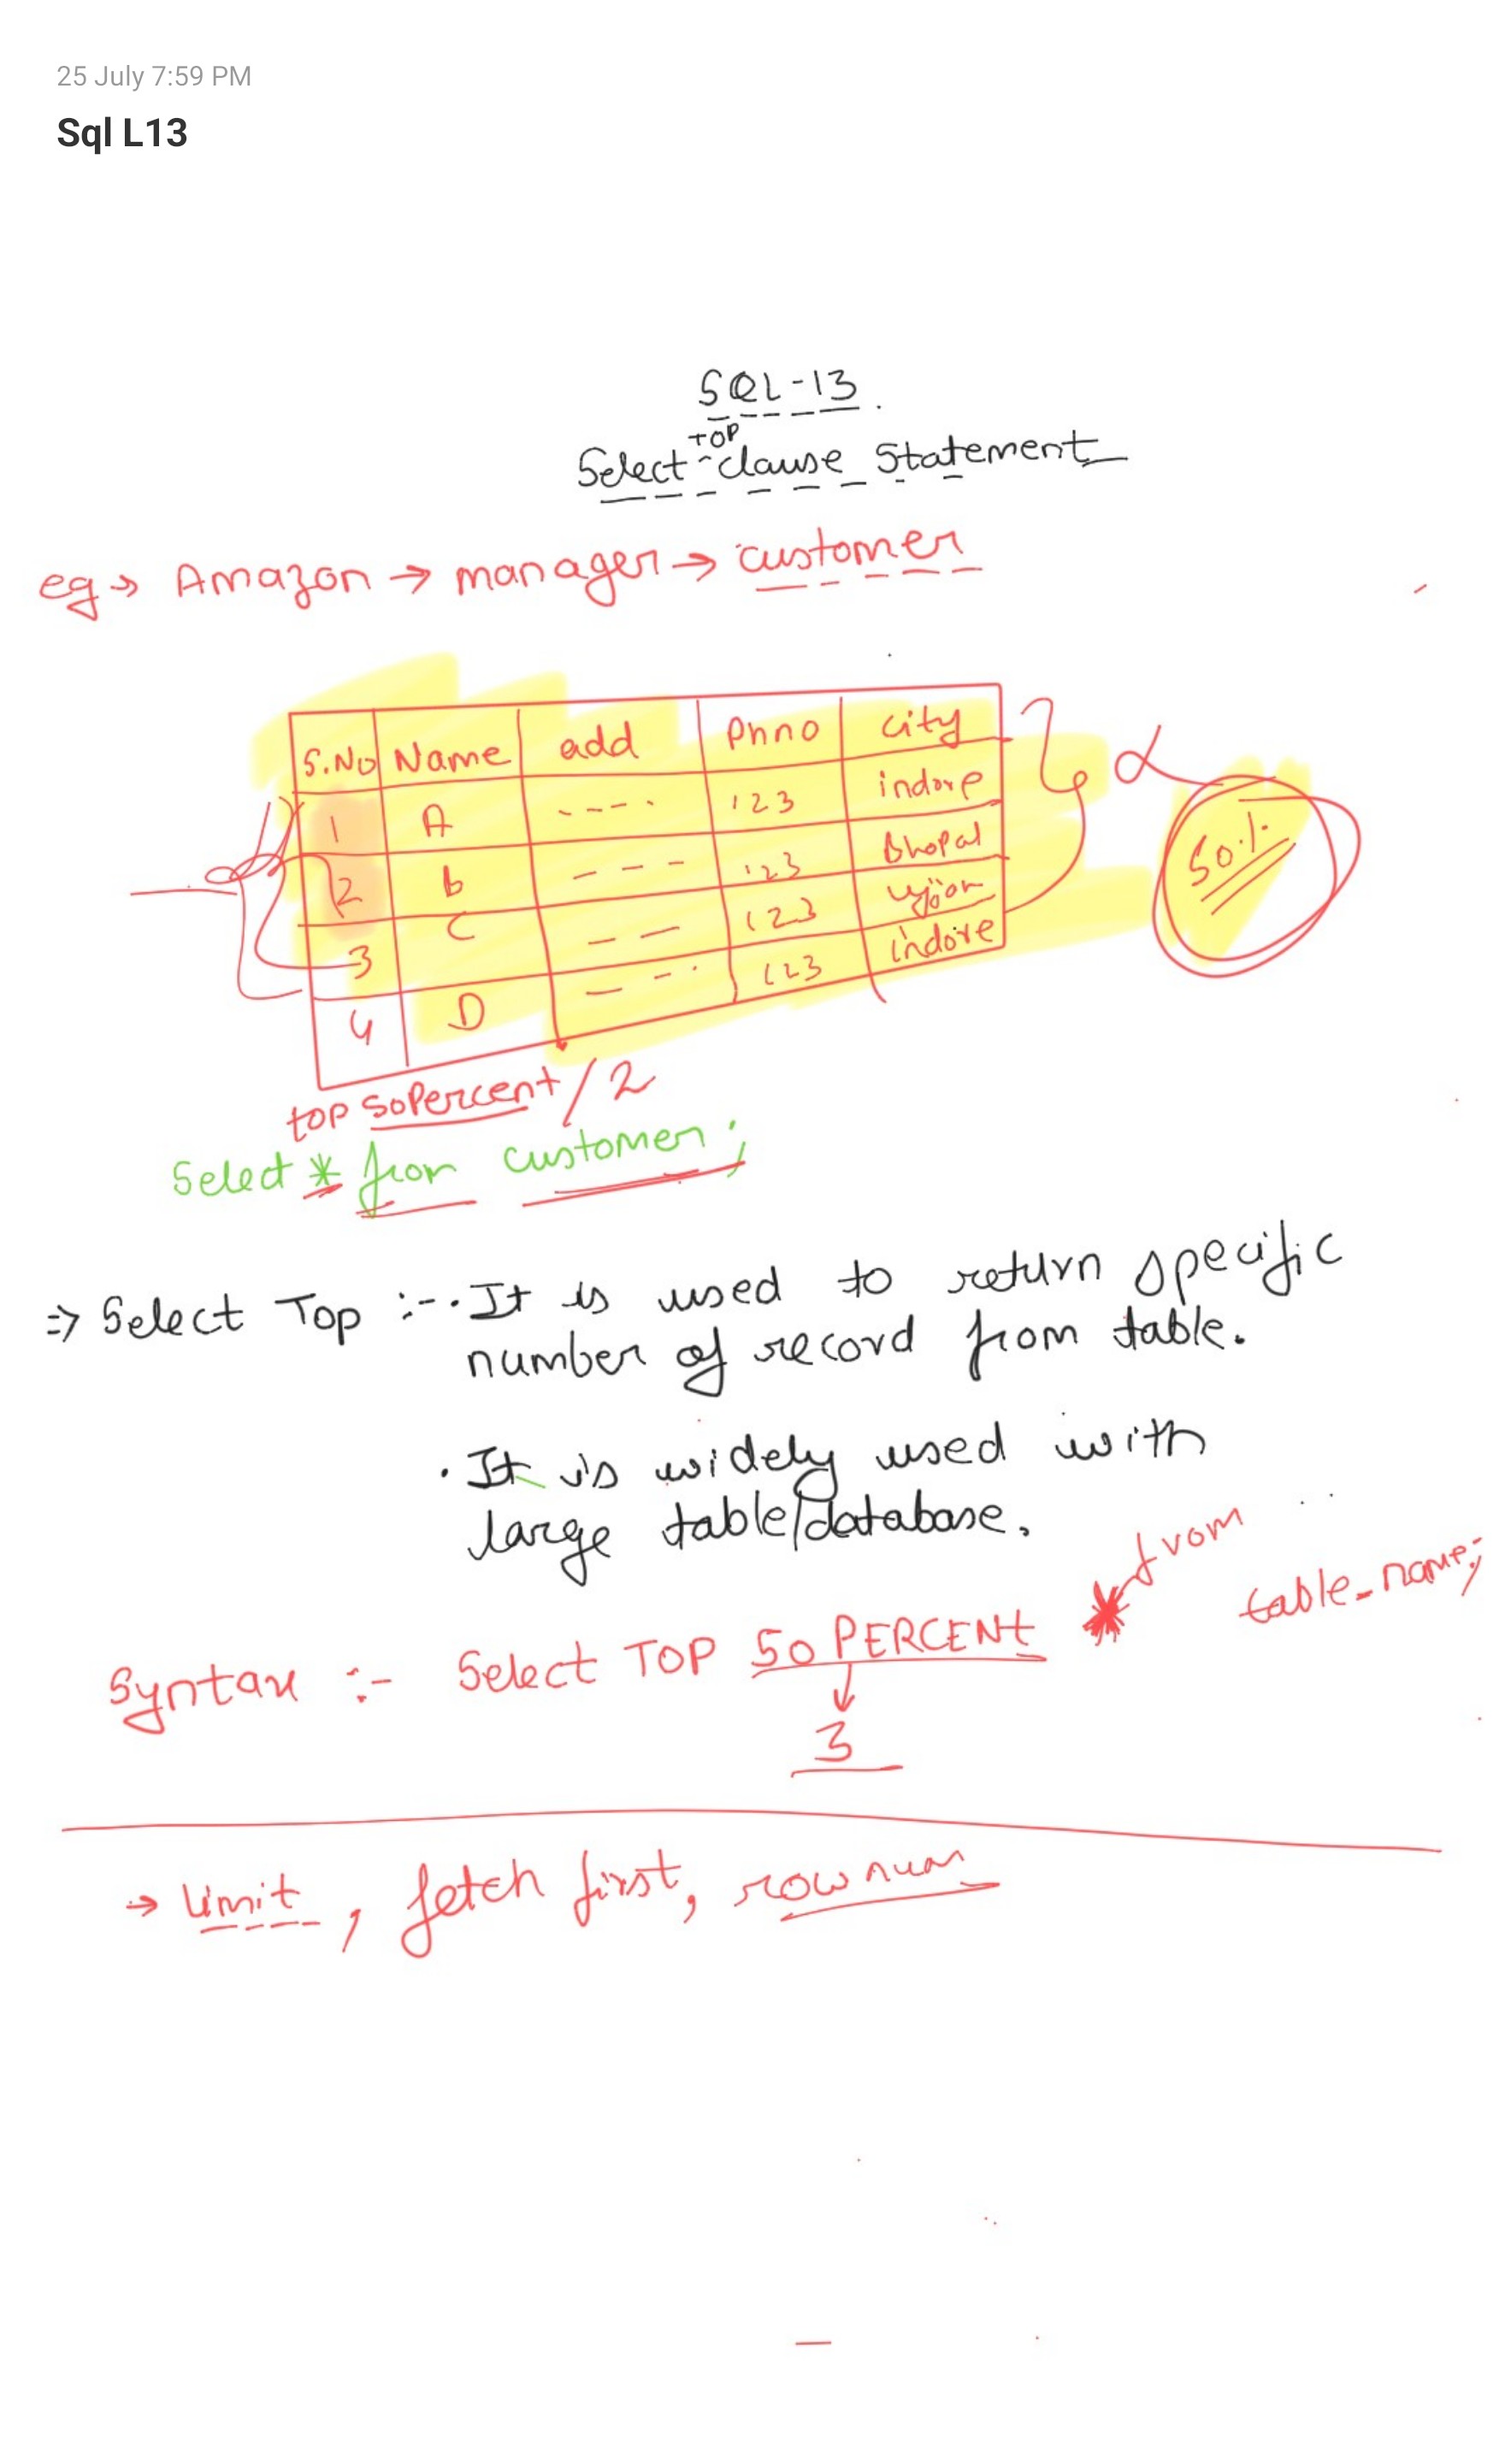 25 July 7:59 PM
Sql L13
SQL-13
TOP
Select clause Statement
eg → Amazon → manager → customer
S.No Name add Phno city
1 A ---- 123 indore
2 b --- 123 Bhopal
3 C -- 123 ujjan
4 D --- 123 indore
50%
top 50Percent / 2
Select * from customer;
⇒ Select Top :- · It is used to return specific
number of record from table.
· It is widely used with
large table/database.
Syntax :- Select TOP 50 PERCENT * from table_name;
3
→ limit, fetch first, rownum